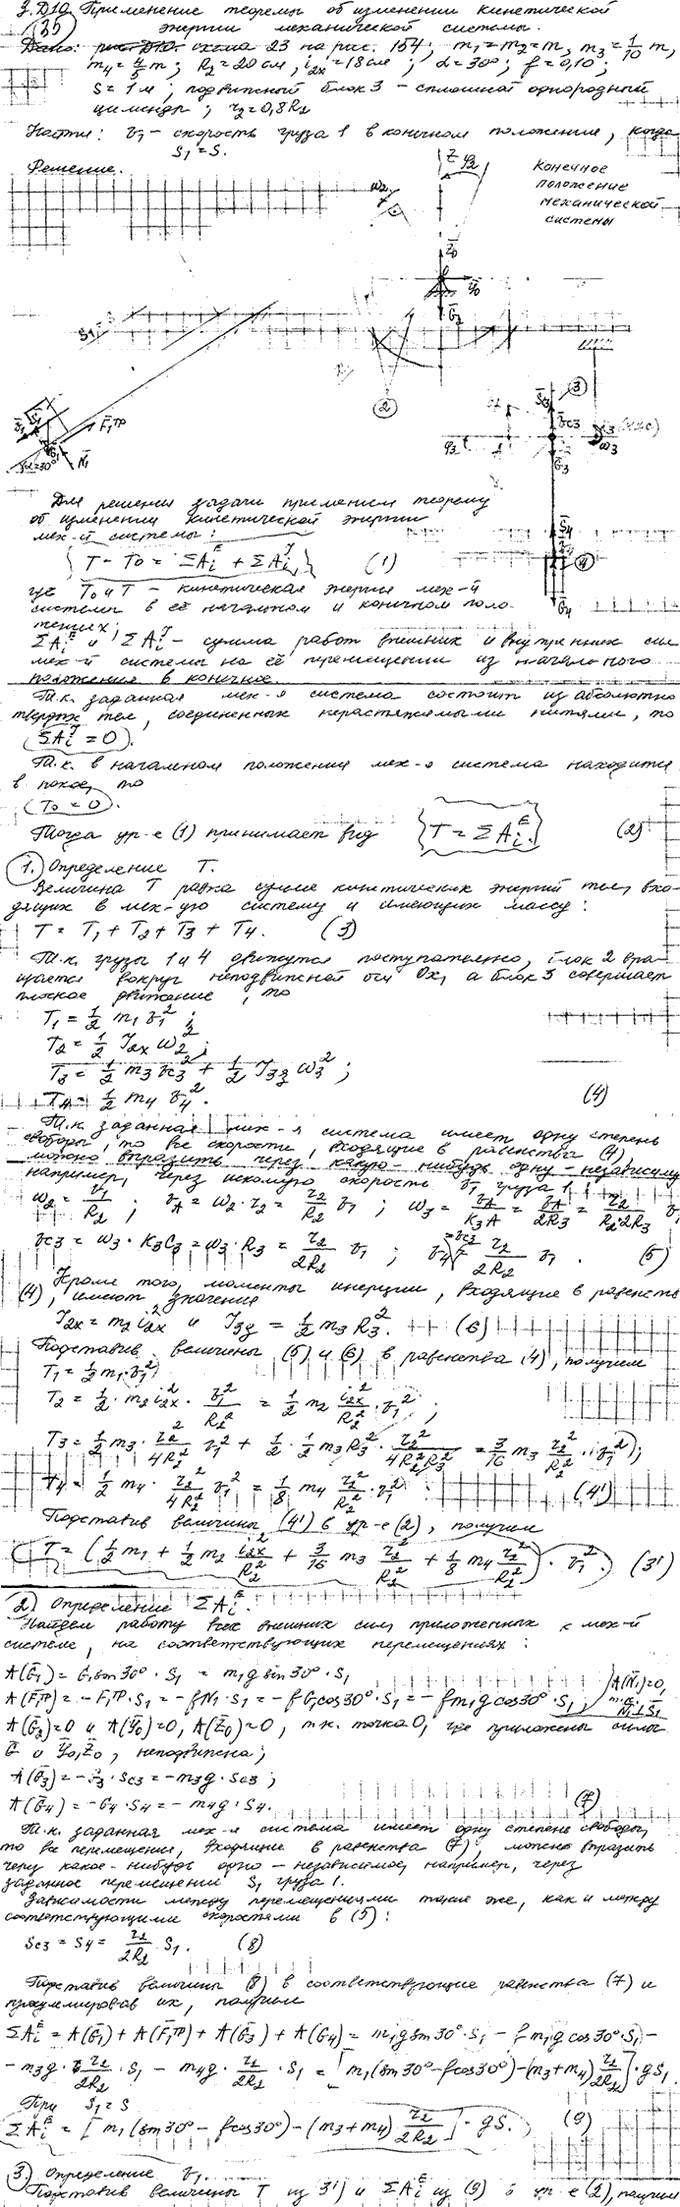 З. Д10 Применение теоремы об изменении кинетической
(35) энергии механической системы.
Дано: схема 23 на рис. 154; m₁=m₂=m, m₃=1/10 m,
m₄=4/5 m; R₂=20см, i₂ₓ=18см; α=30°; f=0,10;
S=1м; подвижный блок 3 – сплошной однородный
цилиндр; r₂=0,8R₂
Найти: v₁ – скорость груза 1 в конечном положении, когда
S₁=S.
Решение.
Конечное
положение
механической
системы
Для решения задачи применим теорему
об изменении кинетической энергии
мех-й системы:
T – T₀ = ΣAᵢᴱ + ΣAᵢᴶ (1)
где T₀ и T – кинетическая энергия мех-й
системы в её начальном и конечном поло-
жениях;
ΣAᵢᴱ и ΣAᵢᴶ – сумма работ внешних и внутренних сил
мех-й системы на её перемещении из начального
положения в конечное.
Т.к. заданная мех-я система состоит из абсолютно
твердых тел, соединенных нерастяжимыми нитями, то
ΣAᵢᴶ = 0.
Т.к. в начальном положении мех-я система находится
в покое, то
T₀ = 0.
Тогда ур-е (1) принимает вид T = ΣAᵢᴱ. (2)
1. Определение T.
Величина T равна сумме кинетических энергий тел, вхо-
дящих в мех-ую систему и имеющих массу:
T = T₁ + T₂ + T₃ + T₄. (3)
Т.к. грузы 1 и 4 движутся поступательно, блок 2 вра-
щается вокруг неподвижной оси Ox, а блок 3 совершает
плоское движение, то
T₁ = 1/2 m₁ v₁²;
T₂ = 1/2 J₂ₓ ω₂²;
T₃ = 1/2 m₃ v_C3² + 1/2 J₃z ω₃²;
T₄ = 1/2 m₄ v₄². (4)
Т.к. заданная мех-я система имеет одну степень
свободы, то все скорости, входящие в равенства (4),
можно выразить через какую-нибудь одну – независимую
например, через искомую скорость v₁ груза 1
ω₂ = v₁/R₂; v_A = ω₂·r₂ = r₂/R₂ v₁; ω₃ = v_A/K₃A = v_A/2R₃ = r₂/R₂·2R₃ v₁
v_C3 = ω₃·K₃C₃ = ω₃·R₃ = r₂/2R₂ v₁; v₄ = v_C3 = r₂/2R₂ v₁. (5)
Кроме того, моменты инерции, входящие в равенств
(4), имеют значения
J₂ₓ = m₂i₂ₓ² и J₃z = 1/2 m₃R₃². (6)
Подставив величины (5) и (6) в равенства (4), получим
T₁ = 1/2 m₁ v₁²;
T₂ = 1/2·m₂i₂ₓ²·v₁²/R₂² = 1/2 m₂ i₂ₓ²/R₂²·v₁²;
T₃ = 1/2 m₃·r₂²/4R₂² v₁² + 1/2·1/2 m₃R₃²·r₂²/4R₂²R₃² = 3/16 m₃ r₂²/R₂²·v₁²;
T₄ = 1/2 m₄·r₂²/4R₂² v₁² = 1/8 m₄ r₂²/R₂² v₁². (4')
Подставив величины (4') в ур-е (2), получим
T = (1/2 m₁ + 1/2 m₂ i₂ₓ²/R₂² + 3/16 m₃ r₂²/R₂² + 1/8 m₄ r₂²/R₂²)·v₁². (3')
2. Определение ΣAᵢᴱ.
Найдем работу всех внешних сил, приложенных к мех-й
системе, на соответствующих перемещениях:
A(G₁) = G₁sin30°·S₁ = m₁g sin30°·S₁
A(F₁ᵀᴾ) = –F₁ᵀᴾ·S₁ = –fN₁·S₁ = –fG₁cos30°·S₁ = –fm₁g cos30°·S₁; A(N₁)=0, т.к. N₁⊥S₁
A(G₂)=0 и A(Y₀)=0, A(Z₀)=0, т.к. точка O, где приложены силы
G и Y₀,Z₀, неподвижна;
A(G₃) = –G₃·S_C3 = –m₃g·S_C3;
A(G₄) = –G₄·S₄ = –m₄g·S₄. (7)
Т.к. заданная мех-я система имеет одну степень свободы,
то все перемещения, входящие в равенства (7), можно выразить
через какое-нибудь одно – независимое, например, через
заданное перемещение S₁ груза 1.
Зависимости между перемещениями такие же, как и между
соответствующими скоростями в (5):
S_C3 = S₄ = r₂/2R₂·S₁. (8)
Подставив величины (8) в соответствующие равенства (7) и
просуммировав их, получим
ΣAᵢᴱ = A(G₁) + A(F₁ᵀᴾ) + A(G₃) + A(G₄) = m₁g sin30°·S₁ – fm₁g cos30°·S₁ –
– m₃g·r₂/2R₂·S₁ – m₄g·r₂/2R₂·S₁ = [m₁(sin30°–fcos30°)–(m₃+m₄) r₂/2R₂]·gS₁.
При S₁=S
ΣAᵢᴱ = [m₁(sin30°–fcos30°)–(m₃+m₄) r₂/2R₂]·gS. (9)
3. Определение v₁.
Подставив величины T из 3') и ΣAᵢᴱ из (9) в ур-е (2), получим